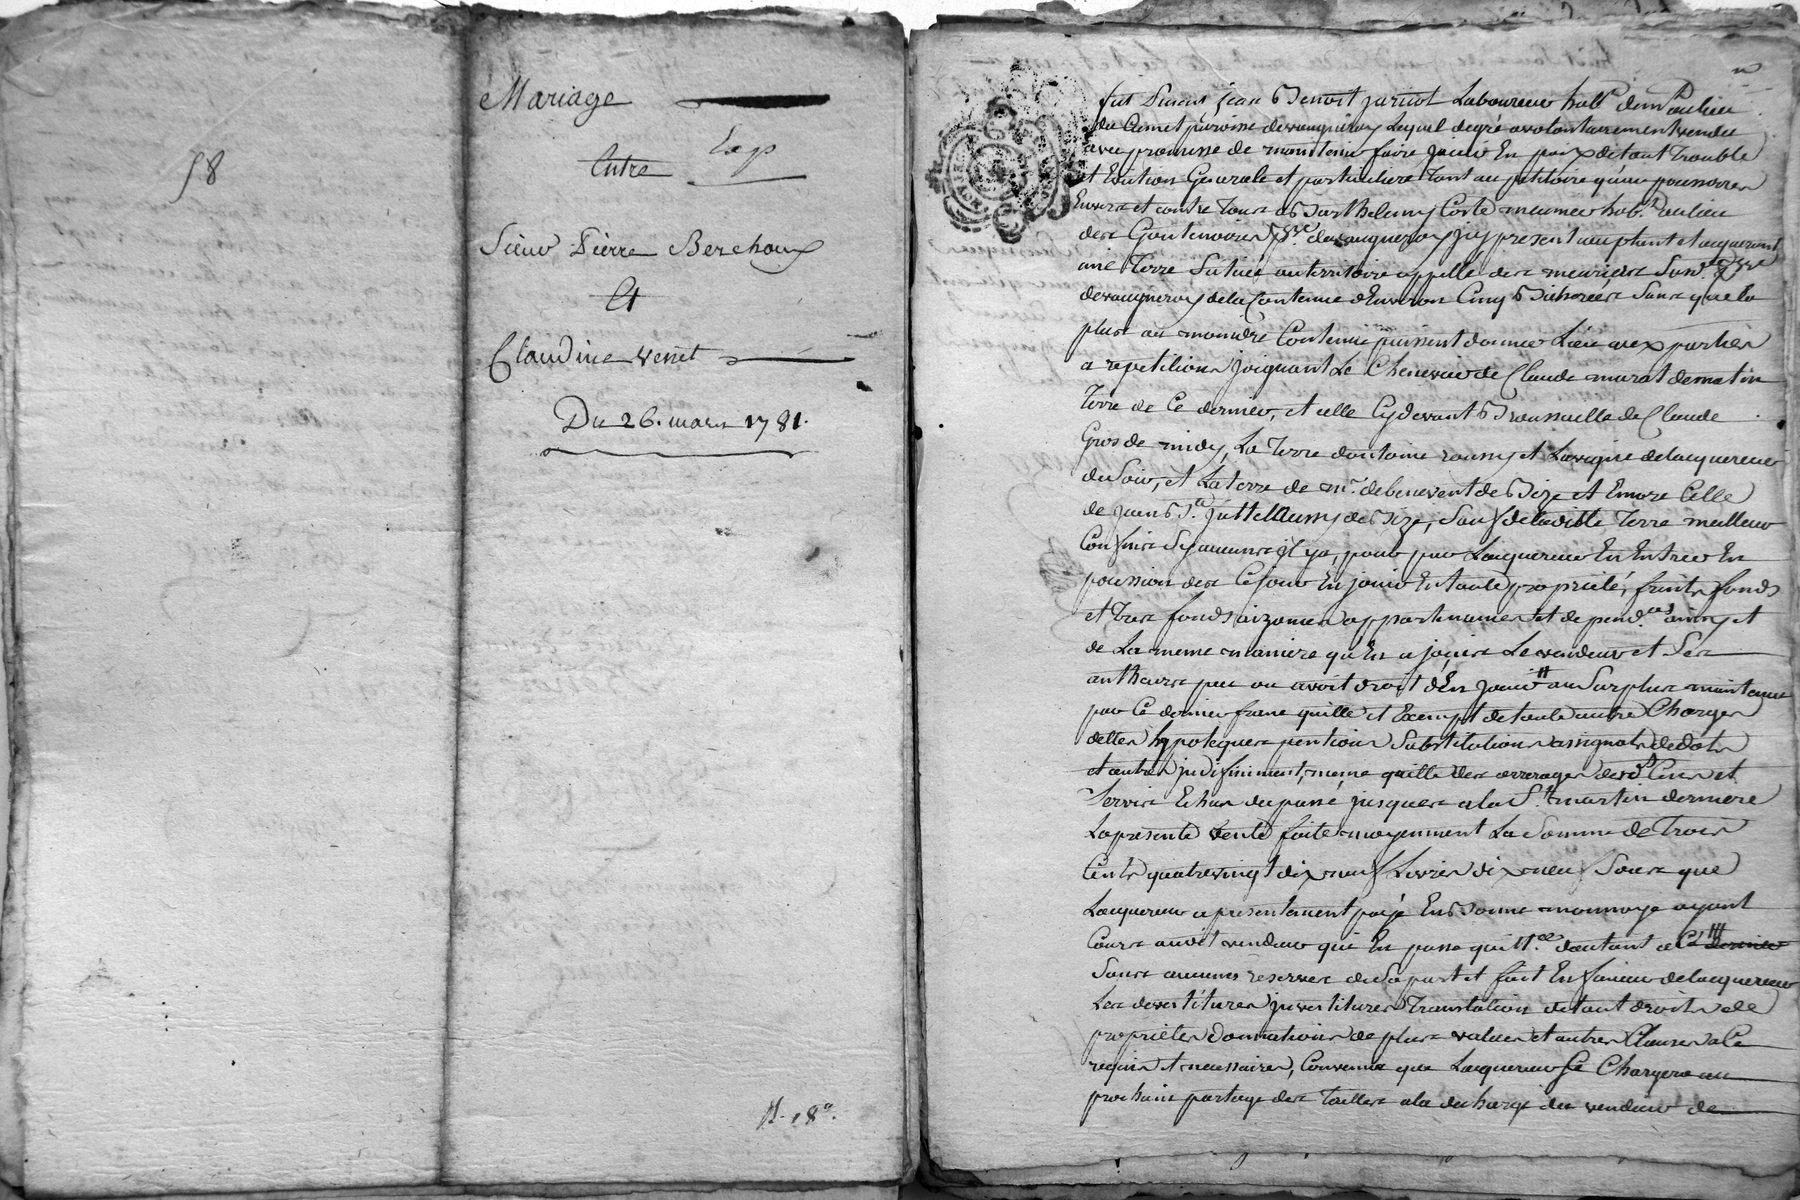 58
Mariage
Entre
Sieur Pierre Berchoux
Et
Claudine Venet
Du 26. mars 1781.
fut present Jean Benoit Laboureur habt
du paroisse de vaugneray Lequel degré a volontairement vendu
avec promesse de maintenir faire jouir En paix de tout Trouble
et Eviction Generale et particuliere tant au petitoire qu'au possoire
Envers et contre tous a Barthelemy Coste meunier habt au lieu
des psse de vaugneray icy present acceptant et acquerant
une Terre Scituée au territoire appellé des meurieres Susd psse
de vaugneray de la Contenue d'Environ Cinq Bicherées Sans que la
plus ou moindre Contenue puissent donner Lieu aux parties
a repetition joignant Le Chenevier de Claude murat de matin
Terre de Ce dernier, et celle Cydevant de Claude
Gros de midy, La Terre d'antoine et La vigne de lacquereur
du Soir, et La terre de mr. de benevent de Bize et Encore Celle
de de Bize, Sauf de ladite Terre meilleur
Confins Sy aucuns il y a, pour par Lacquereur En Entrer En
possion des Ce jour En jouir En toute proprieté, fruits fonds
et tres fonds aizances appartenances et depend.ces ainsy et
de La meme maniere qu'En a jouis Le vendeur et Ses
autheurs peu ou avoit droit d'En jouir au Surplus maintenue
par Ce dernier franc quitte et Exempt de toute autre Charges
dettes hypoteques pentions Substitutions assignats de dots
et autres indefiniment, meme quitte des arrerages desds Cens et
Servis Echus du passé jusques a la St. martin derniere
La presente vente faite moyennant La Somme de Trois
Cents quatrevingt dix neuf Livres dix neuf Sous que
Lacquereur a presentement payé En Bonne monnoye ayant
Cours audit vendeur qui En passe quitt.ce d'autant a Ce
Sans aucunes reserves de Sa part et fait En faveur de lacquereur
Les devestitures investitures Translation de tout droits de
proprietes donnations de plus values et autres Clauses a Ce
requis et necessaires, Convenu que Lacquereur Se Chargera au
prochain partage des Tailles a la decharge du vendeur de